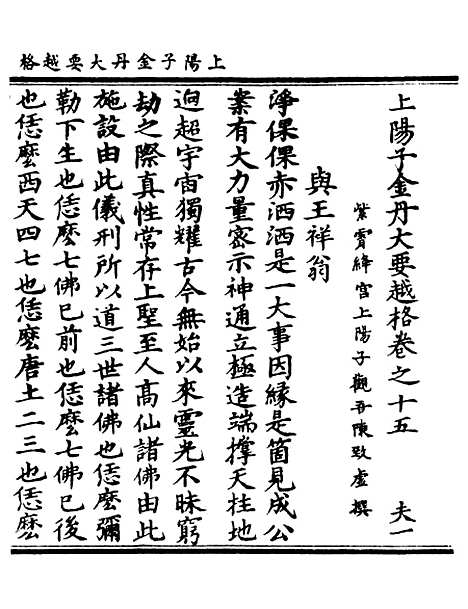 上陽子金丹大要越格
上陽子金丹大要越格卷之十五　夫一
紫霄絳宮上陽子觀吾陳致虛撰
與王祥翁
淨倮倮赤洒洒是一大事因緣是箇見成公
案有大力量密示神通立極造端撑天拄地
逈超宇宙獨耀古今無始以來靈光不昧窮
劫之際真性常存上聖至人高仙諸佛由此
施設由此儀刑所以道三世諸佛也恁麽彌
勒下生也恁麽七佛已前也恁麽七佛已後
也恁麽西天四七也恁麽唐土二三也恁麽